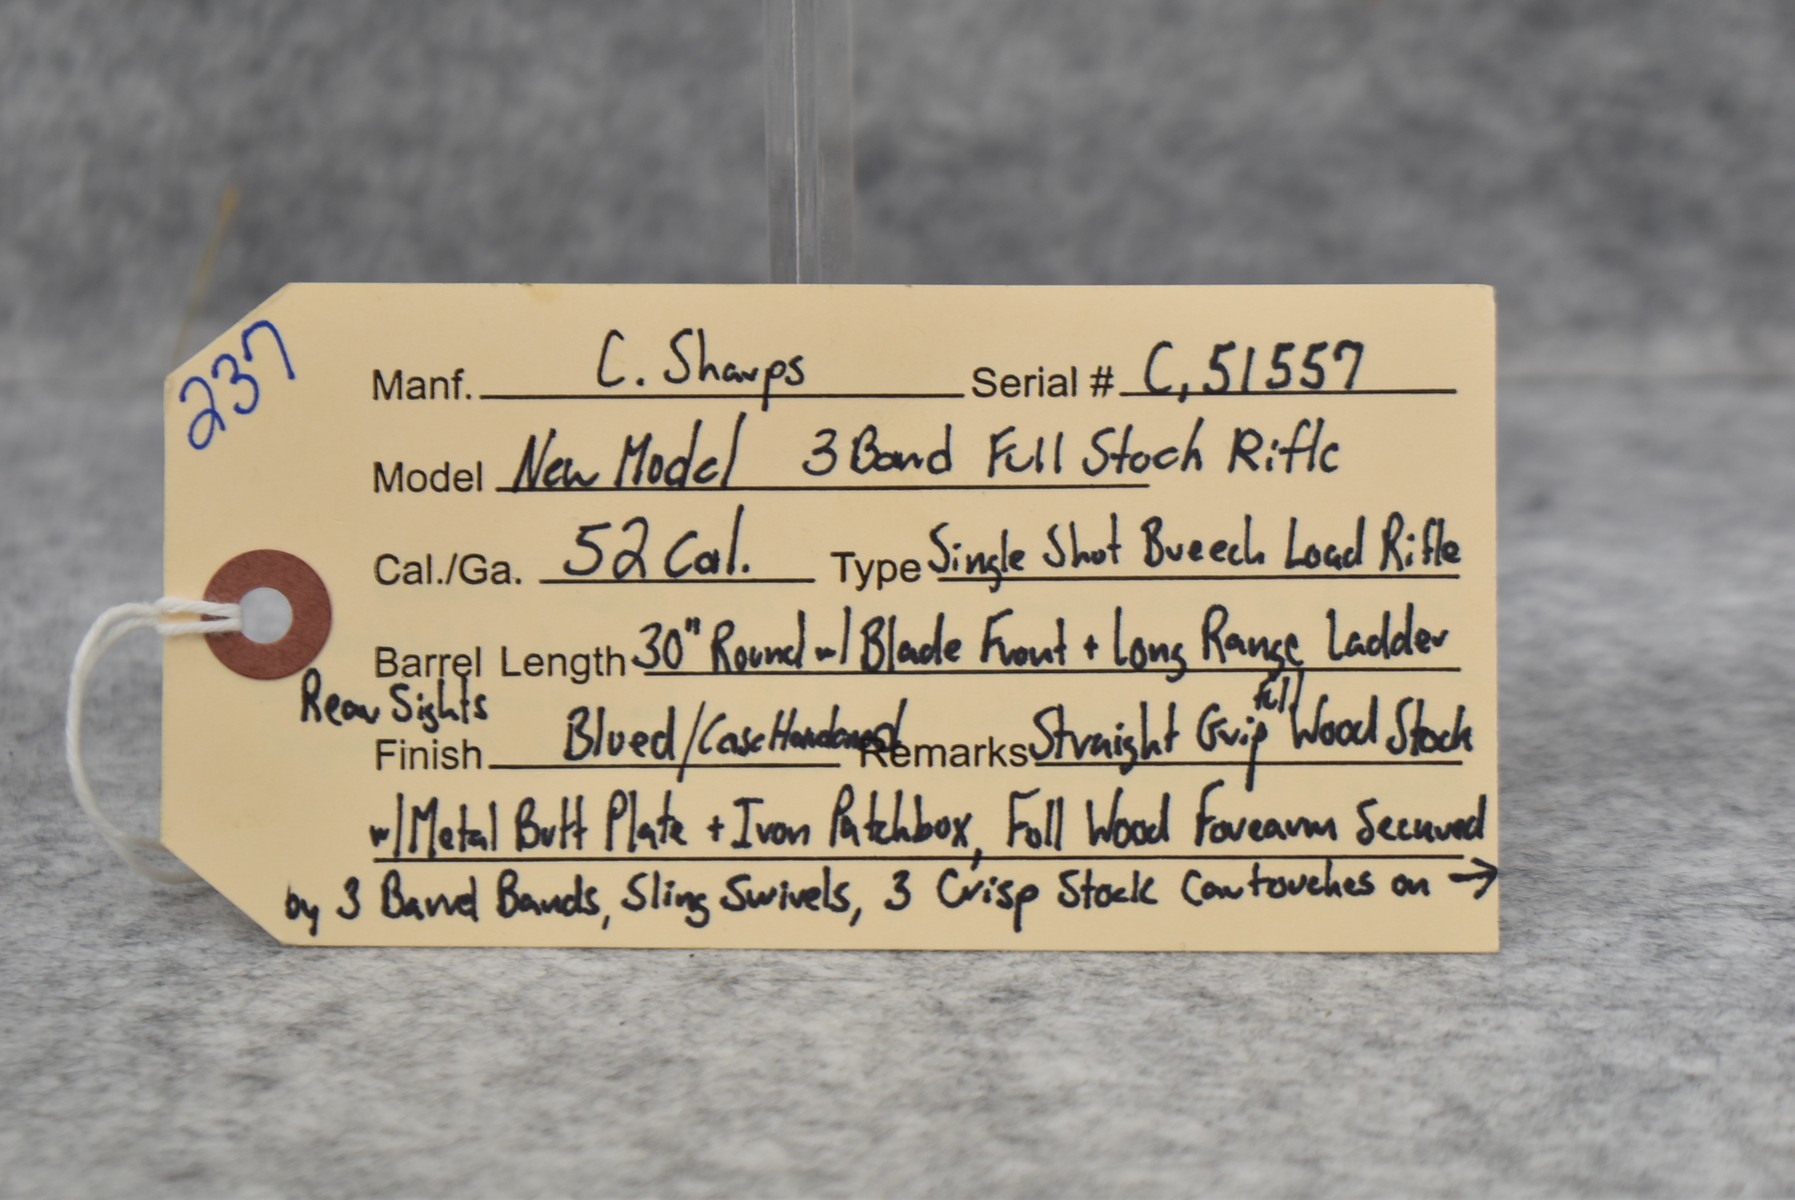 237
Manf. C. Sharps Serial # C,51557
Model New Model 3 Band Full Stock Rifle
Cal./Ga. 52 Cal. Type Single Shot Breech Load Rifle
Barrel Length 30" Round w/ Blade Front + Long Range Ladder
Rear Sights
Finish Blued/Case Hardened Remarks Straight Grip Full Wood Stock
w/ Metal Butt Plate + Iron Patchbox, Full Wood Forearm Secured
by 3 Barrel Bands, Sling Swivels, 3 Crisp Stock Cartouches on →